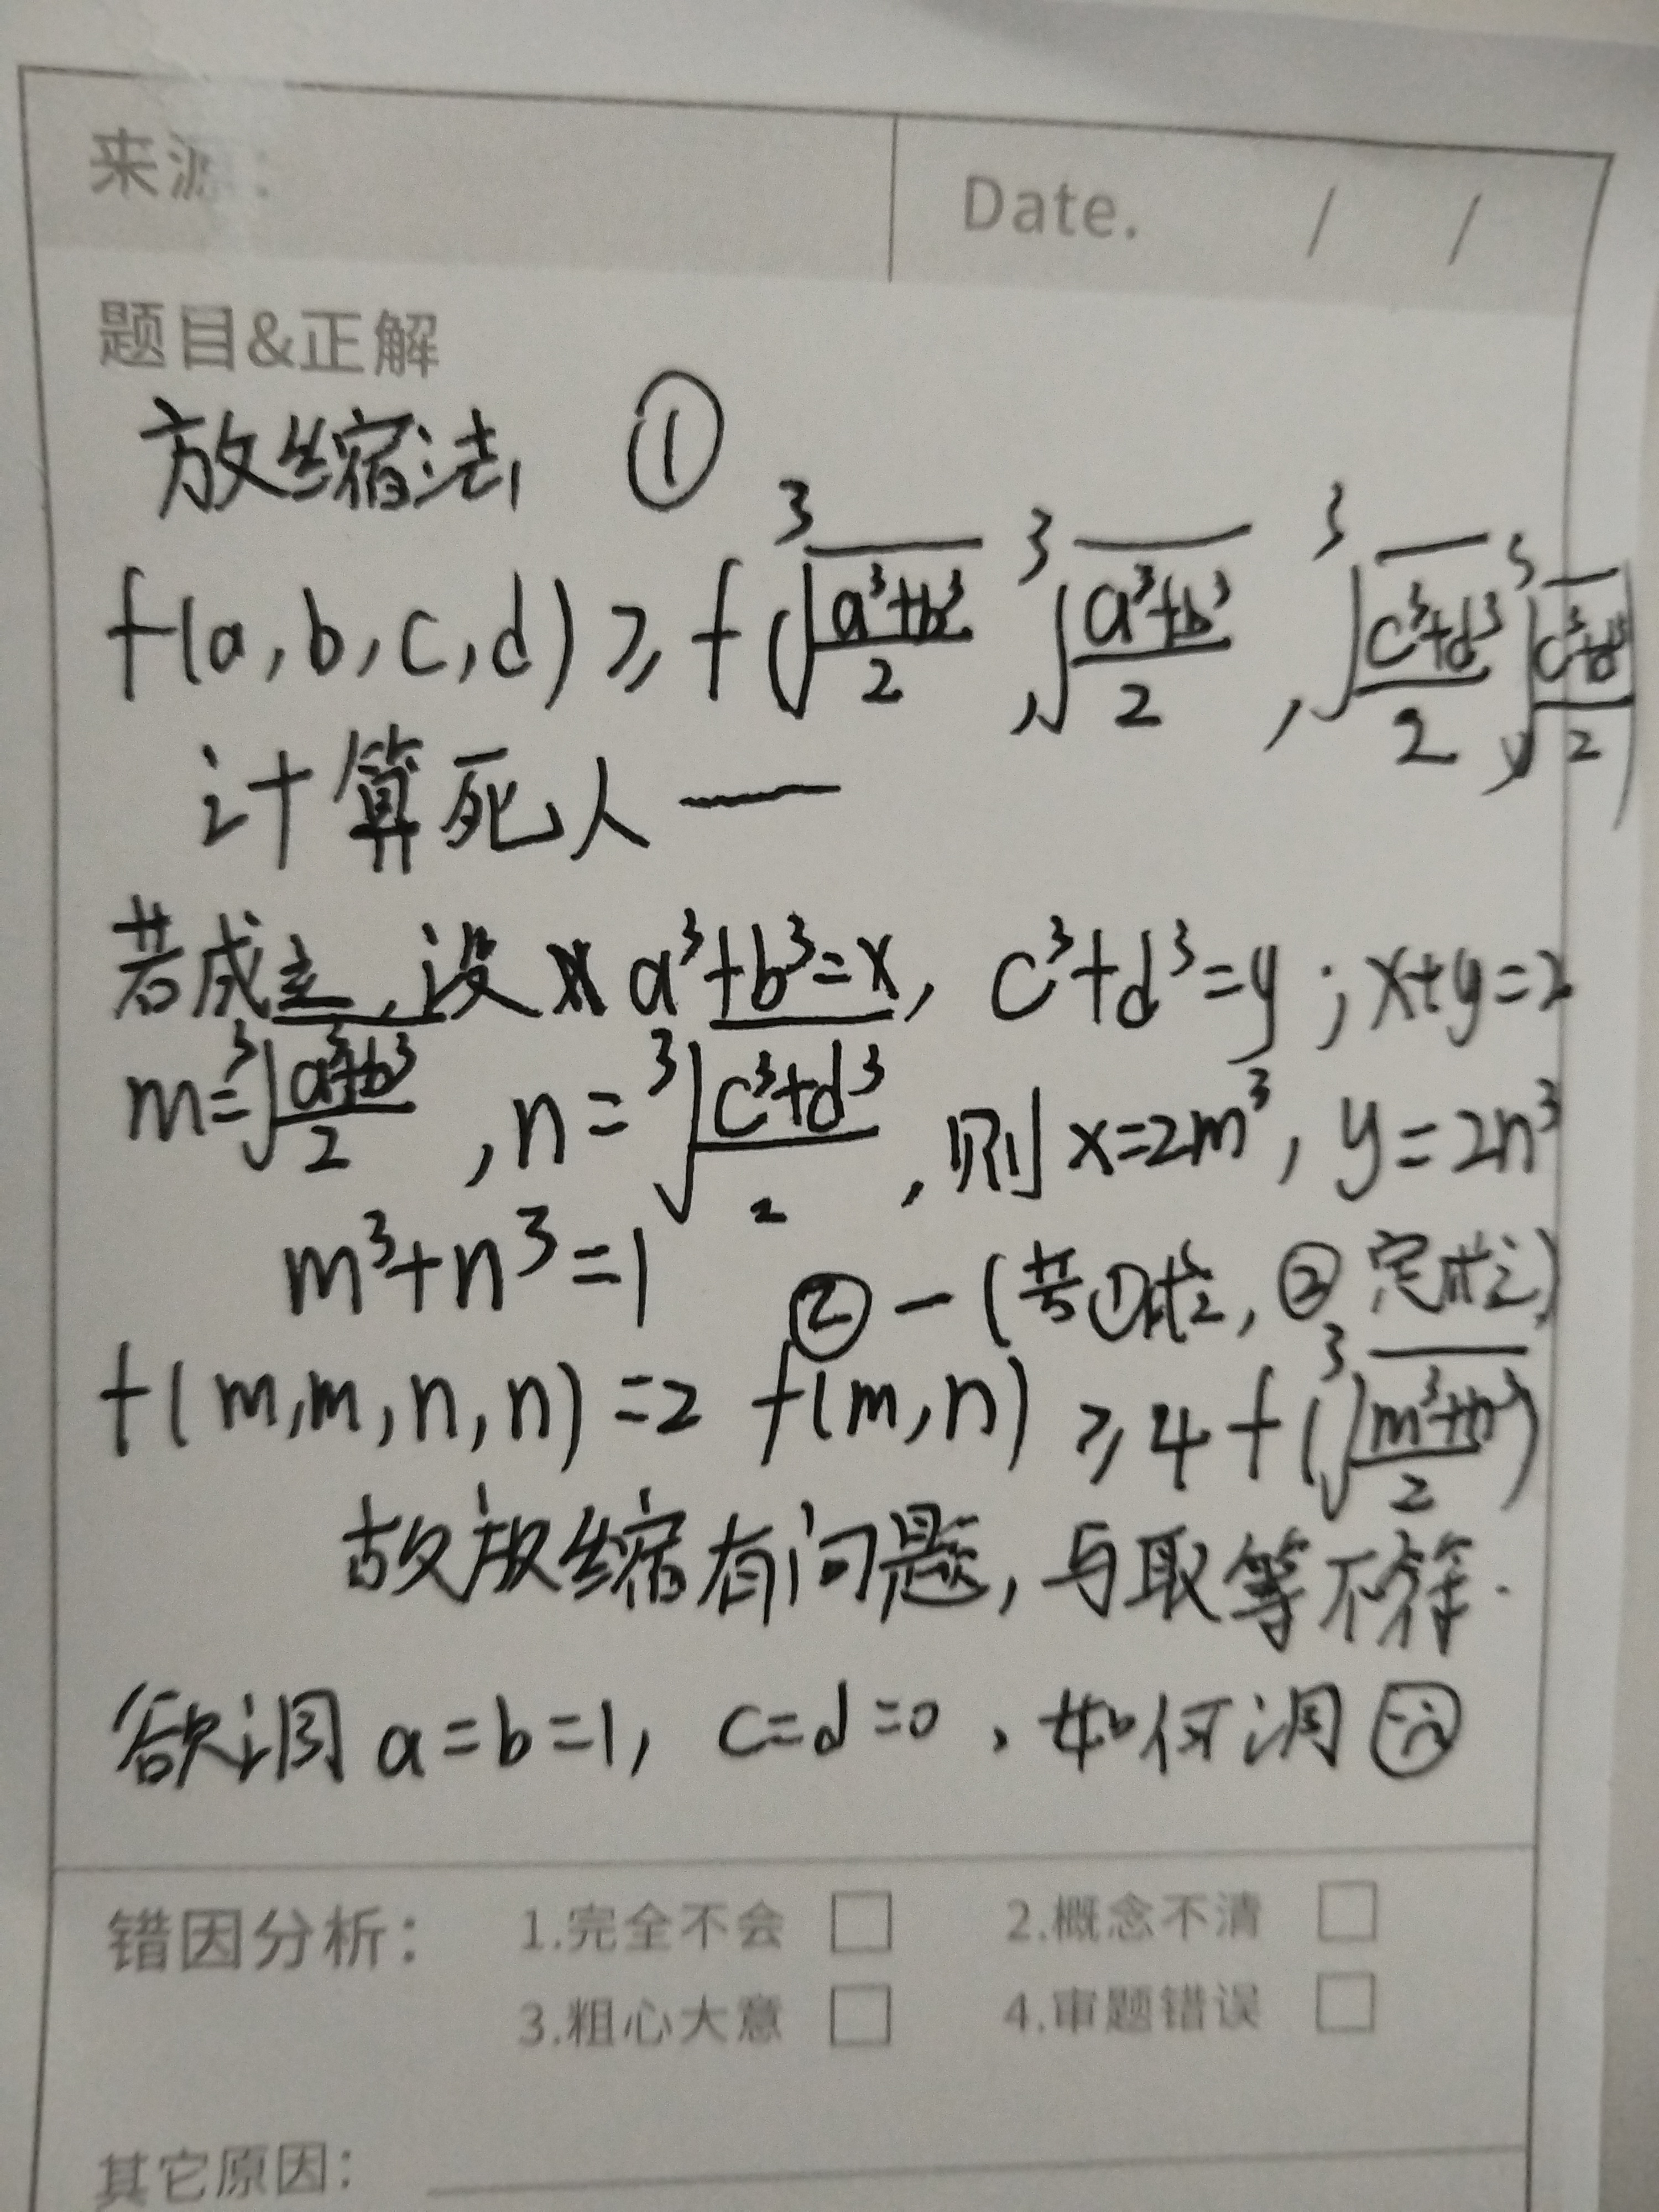 来源:
Date. / /
题目&正解
放缩法 ①
f(a,b,c,d) ≥ f(∛((a³+b³)/2), ∛((a³+b³)/2), ∛((c³+d³)/2), ∛((c³+d³)/2))
计算死人——
若成立,设 a³+b³=x, c³+d³=y; x+y=2
m=∛((a³+b³)/2), n=∛((c³+d³)/2), 则 x=2m³, y=2n³
m³+n³=1 ②-(若①成立, ②定成立)
f(m,m,n,n)=2f(m,n) ≥ 4f(∛((m³+n³)/2))
故放缩有问题,与取等不符.
欲调 a=b=1, c=d=0, 如何调
错因分析: 1.完全不会 □ 2.概念不清 □
3.粗心大意 □ 4.审题错误 □
其它原因: